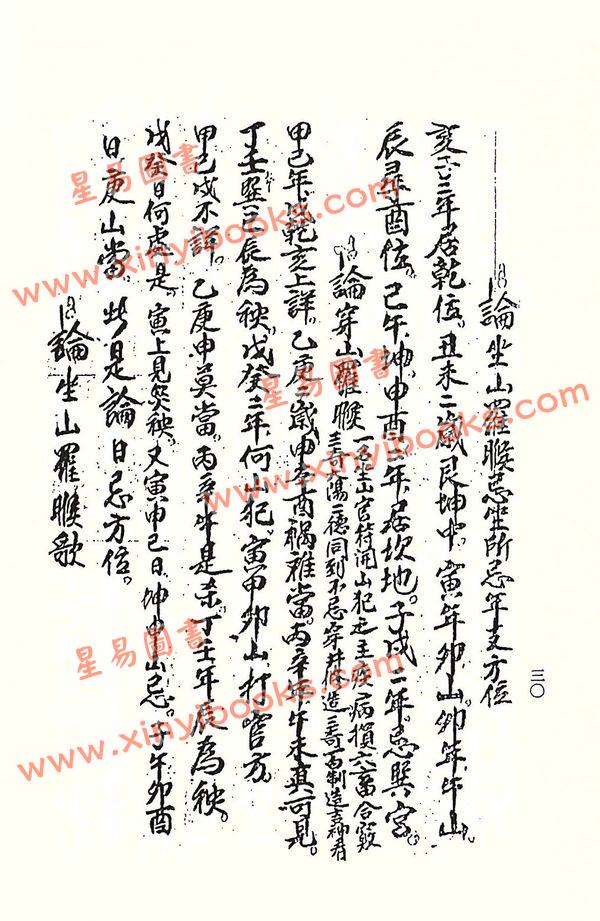 論坐山羅睺忌坐所忌年支方位
三〇
亥三年居乾位。丑未二歲艮坤中。寅年卯山。卯年午山
辰尋酉位。己午坤。申酉三年居坎地。子戌二年忌巽宮。
論穿山羅睺
一名坐山官符開山犯之主疾病損六畜合
太陽二德同到不忌
修造
甲己年乾亥上詳。乙庚二歲申酉禍誰當。丙辛午未真可見。
丁壬巽巳辰為殃。戊癸二年何山犯。寅甲卯山打官方。
甲己戌不詳。乙庚申莫當。丙辛午是杀。丁壬年辰為殃。
戊癸日何處是。寅上見災殃。又寅申己日坤山忌。子午卯酉
日庚山當。此是論日忌方位。
論坐山羅睺歌
星易圖書
www.xinyibooks.com
星易圖書
www.xinyibooks.com
星易圖書
www.xinyibooks.com